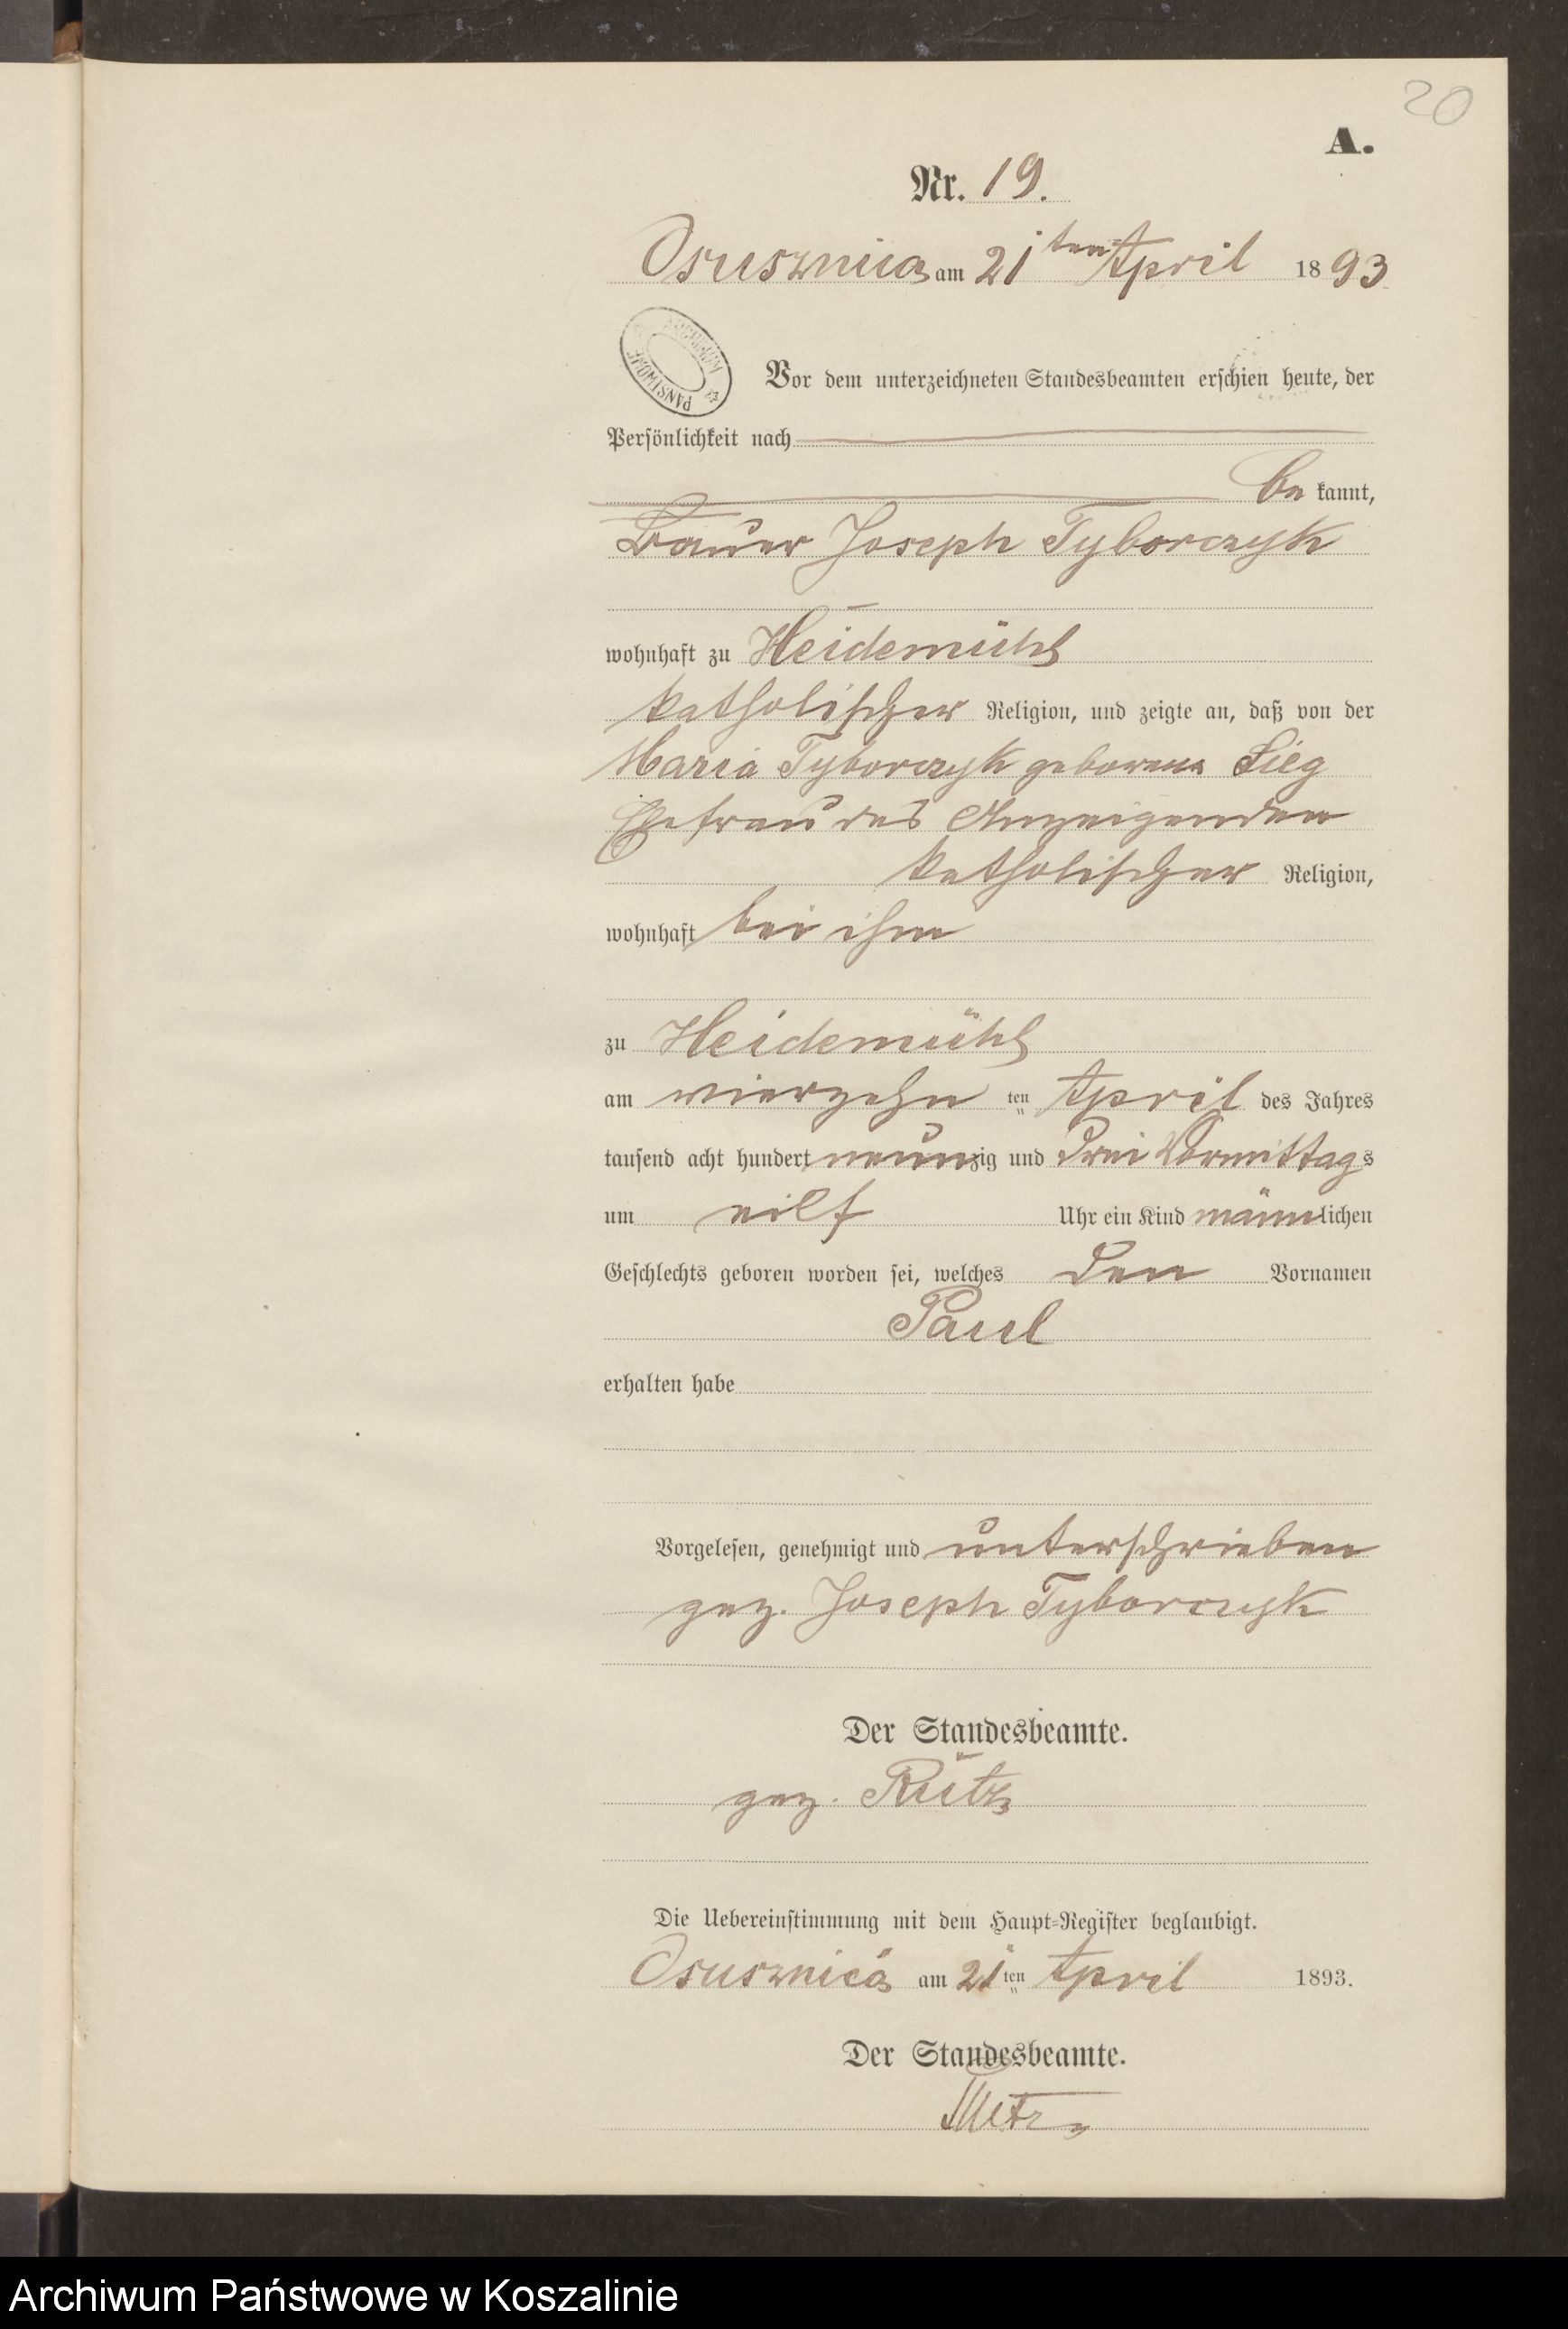 20
A.
Nr. 19.
Osusznica am 21ten April 1893
ARCHIWUM PAŃSTWOWE
Vor dem unterzeichneten Standesbeamten erschien heute, der
Persönlichkeit nach
be kannt,
Bauer Joseph Tyborczyk
wohnhaft zu Heidemühl
katholischer Religion, und zeigte an, daß von der
Maria Tyborczyk geborene Sieg
Ehefrau des Anzeigenden
katholischer Religion,
wohnhaft bei ihm
zu Heidemühl
am vierzehn ten April des Jahres
tausend acht hundert neunzig und drei Vormittags
um eilf Uhr ein Kind männlichen
Geschlechts geboren worden sei, welches den Vornamen
Paul
erhalten habe
Vorgelesen, genehmigt und unterschrieben
gez. Joseph Tyborczyk
Der Standesbeamte.
gez. Rütz
Die Uebereinstimmung mit dem Haupt-Register beglaubigt.
Osusznica am 21ten April 1893.
Der Standesbeamte.
Rütz
Archiwum Państwowe w Koszalinie